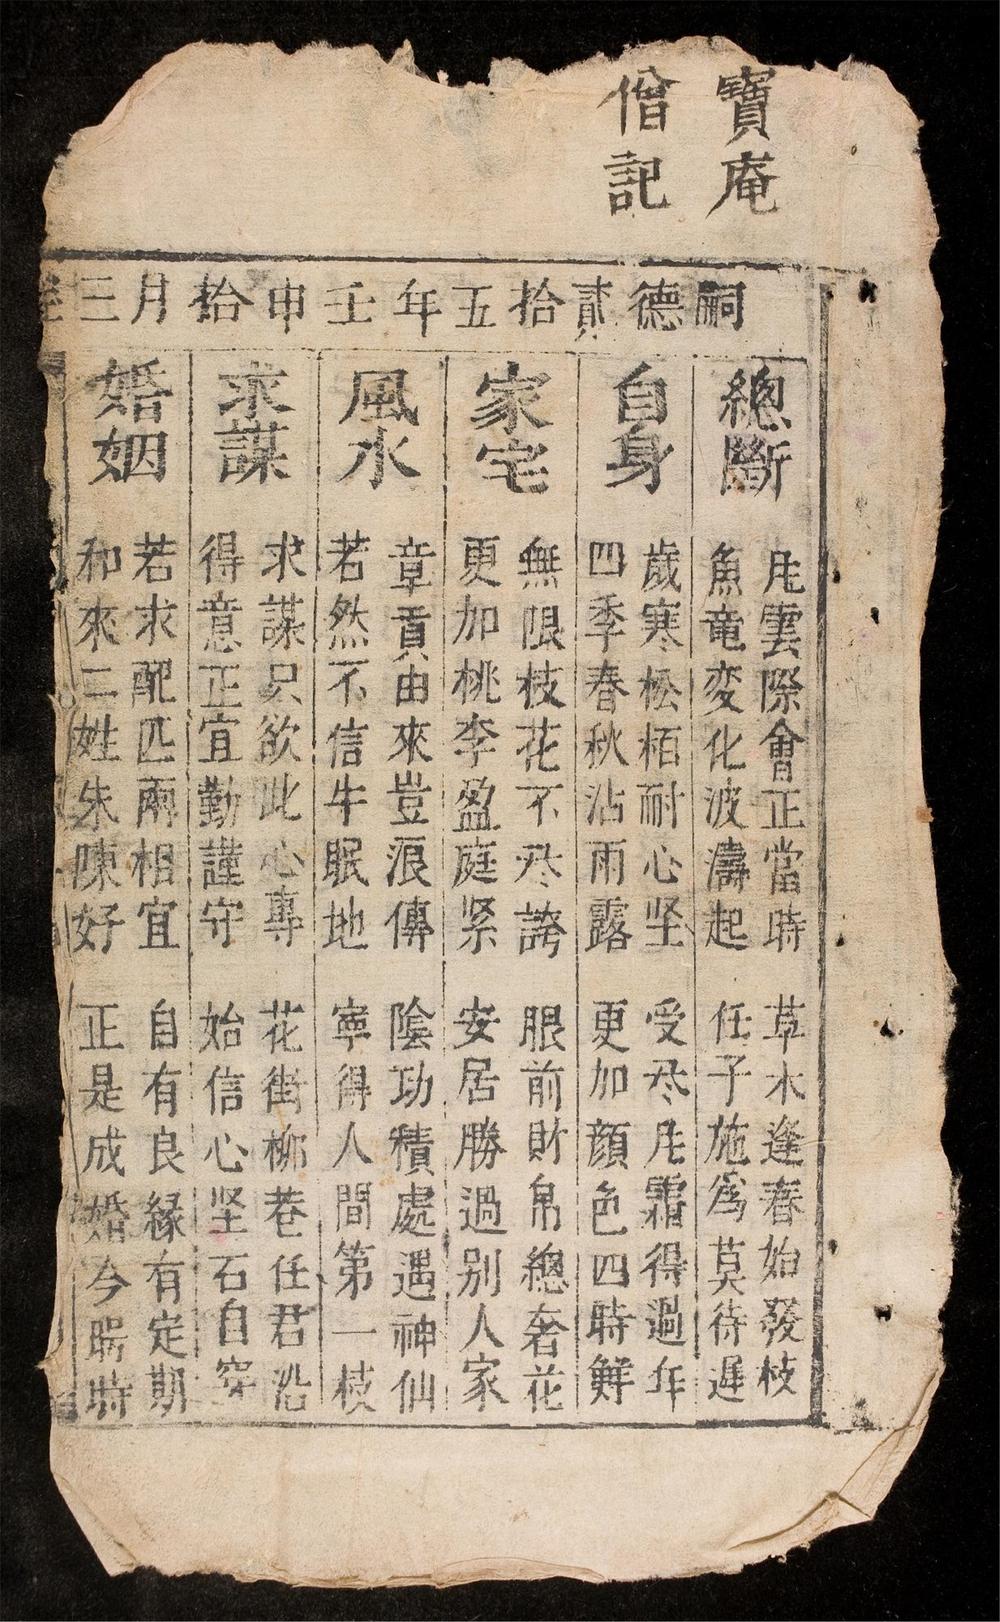 寶庵
僧記
嗣德貳拾五年壬申拾月三
總斷
凮雲際會正當時 草木逢春始發枝
魚竜变化波濤起 任子施為莫待遲
自身
歲寒松栢耐心坚 受尽凮霜得過年
四季春秋沾雨露 更加顔色四時鮮
家宅
無限枝花不尽誇 眼前財帛總奢花
更加桃李盈庭紧 安居勝過别人家
風水
章貢由來豈浪傳 陰功積處遇神仙
若然不信牛眠地 寧得人間第一枝
求謀
求謀只欲此心專 花街柳巷任君沿
得意正宜勤謹守 始信心坚石自穿
婚姻
若求配匹兩相宜 自有良緣有定期
和來二姓朱陳好 正是成婚今聘時